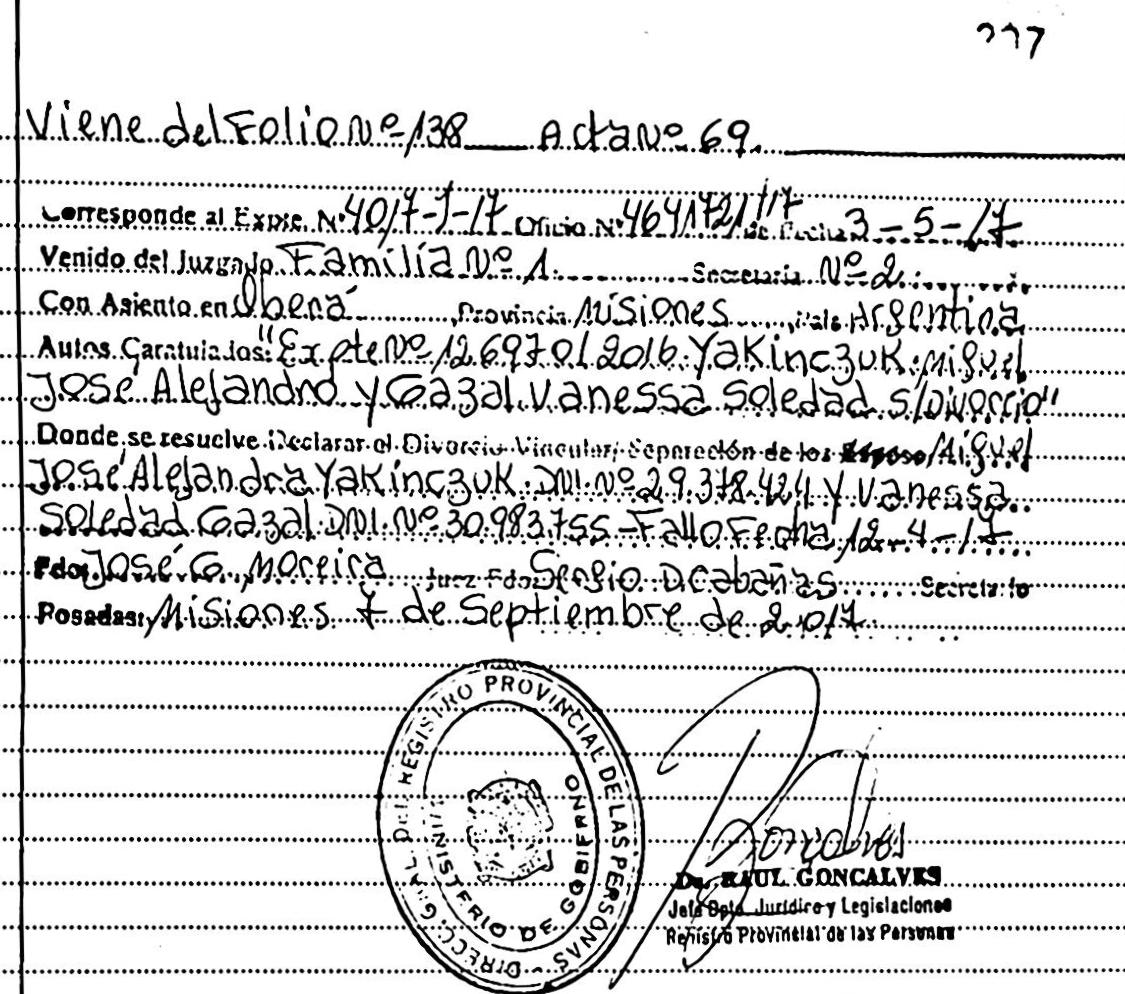 Viene del Folio Nº 138 Acta Nº 69.
Corresponde al Expte. Nº 4017-J-17 Oficio Nº 4641721/17 de Fecha 3-5-17
Venido del Juzgado Familia Nº 1. Secretaria Nº 2.
Con Asiento en Oberá Provincia Misiones País Argentina
Autos Caratulados: "Expte Nº 126970/2016. Yakinczuk Miguel
José Alejandro y Gazal Vanessa Soledad s/Divorcio"
Donde se resuelve Declarar el Divorcio Vincular, Separación de los Esposo/Miguel
José Alejandra Yakinczuk. DNI. Nº 29.378.424 y Vanessa
Soledad Gazal DNI. Nº 30.983.755 - Fallo Fecha 12-4-17
Fdo: José G. Moreira Juez Fdo: Sergio D. Cabañas Secretario
Posadas: Misiones 7 de Septiembre de 2017
DIRECC. G'AL DEL REGISTRO PROVINCIAL DE LAS PERSONAS
MINISTERIO DE GOBIERNO
Dr. RAUL GONCALVES
Jefe Dpto. Jurídico y Legislaciones
Registro Provincial de las Personas